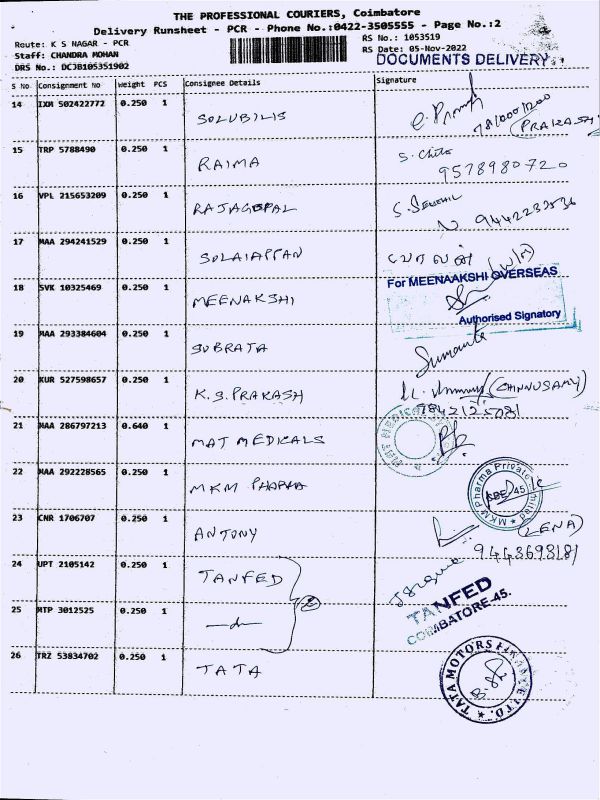 THE PROFESSIONAL COURIERS, Coimbatore
Delivery Runsheet - PCR - Phone No.:0422-3505555 - Page No.:2
Route: K S NAGAR - PCR
RS No.: 1053519
Staff: CHANDRA MOHAN
RS Date: 05-Nov-2022
DRS No.: DCJB105351902
DOCUMENTS DELIVERY
S No Consignment No Weight PCS Consignee Details Signature
14 IXM 502422772 0.250 1 SOLUBILIS
(PRAKASH)
15 TRP 5788490 0.250 1 RAIMA S. Chitra
9578980720
16 VPL 215653209 0.250 1 RAJAGOPAL S. SENTHIL
17 MAA 294241529 0.250 1 SOLAIAPPAN
For MEENAAKSHI OVERSEAS
18 SVK 10325469 0.250 1 MEENAKSHI
Authorised Signatory
19 MAA 293384604 0.250 1 SUBRATA
20 KUR 527598657 0.250 1 K.S.PRAKASH (CHINNUSAMY)
21 MAA 286797213 0.640 1 MAT MEDICALS
22 MAA 292228565 0.250 1 MKM PHARMA MKM Pharma Private Limited
CBE 45
23 CNR 1706707 0.250 1 ANTONY (LENA)
24 UPT 2105142 0.250 1 TANFED TANFED
COIMBATORE-45.
25 MTP 3012525 0.250 1 —do— 2
26 TRZ 53834702 0.250 1 TATA TATA MOTORS FINANCE LTD.